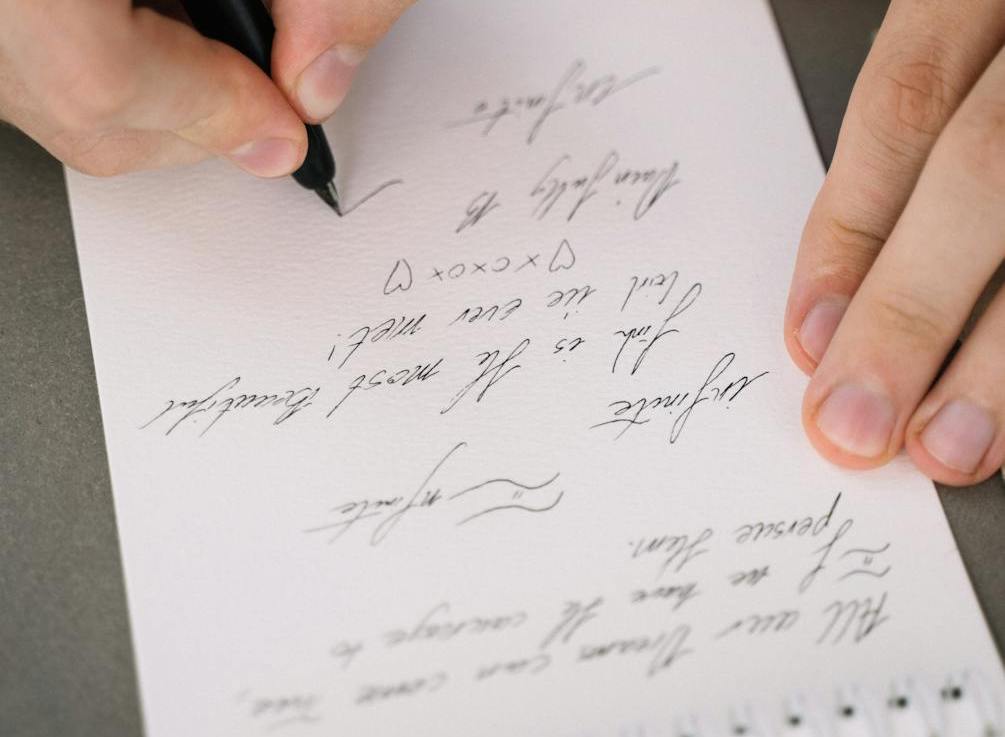 All our Dreams can come True,
if we have the courage to
persue them.
infinite
infinite
is the most Beautiful
Girl i've ever met!
♡ xoxox ♡
Painfully B